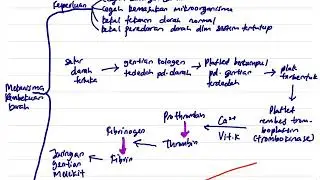 Keperluan
cegah kemasukan mikroorganisma
kekal tekanan darah normal
kekal peredaran darah dlm sistem tertutup
Mekanisme
Pembekuan
Darah
salur
darah
terluka
gentian kolagen
terdedah pd. darah
Platlet berkumpul
pd. gentian
terdedah
plak
terbentuk
Platlet
rembes trom-
boplastin
(trombokinase)
Ca²⁺
Vit.K
Prothrombin
Thrombin
Fibrinogen
Fibrin
Jaringan
gentian
Melekit